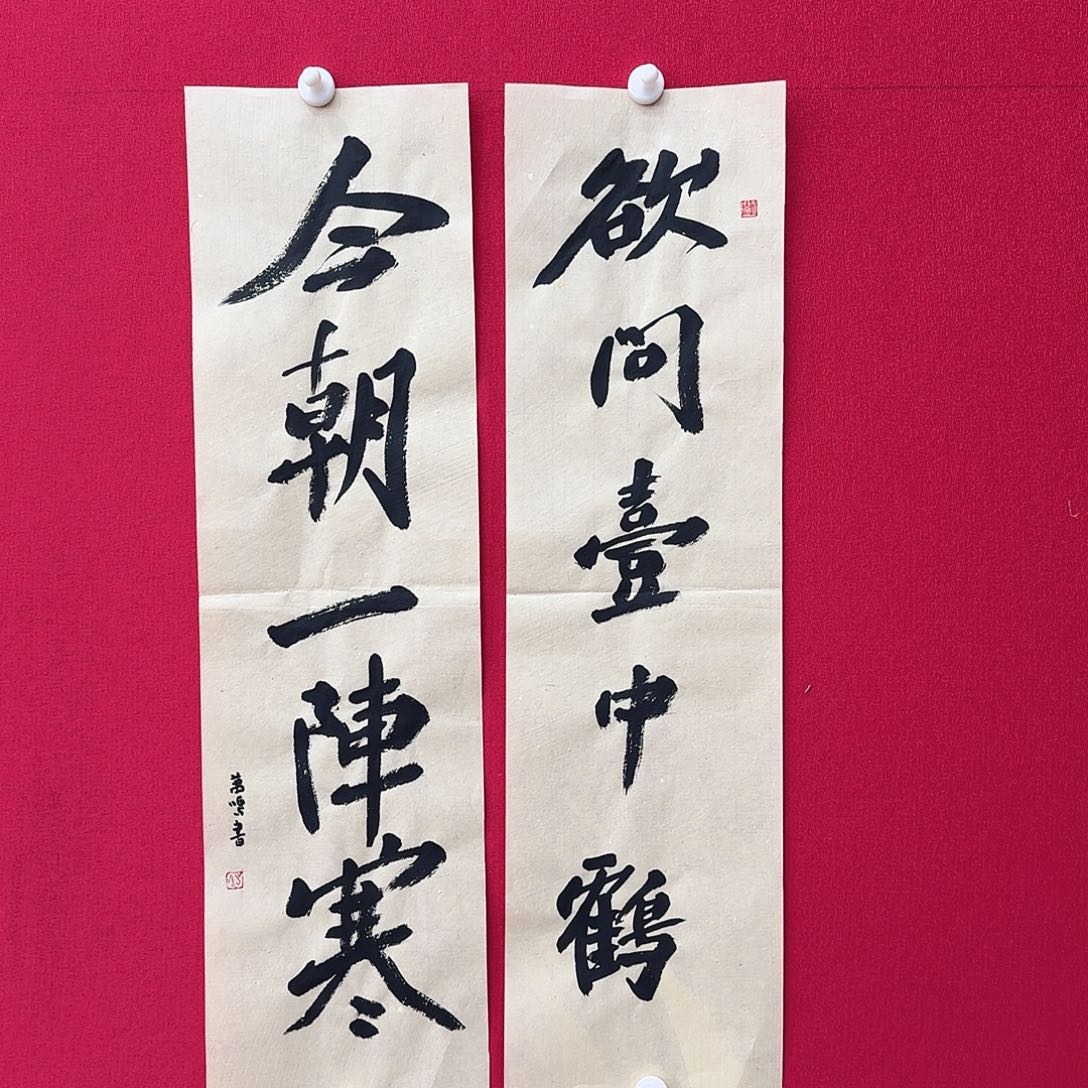 欲問壹中鶴
今朝一陣寒
書